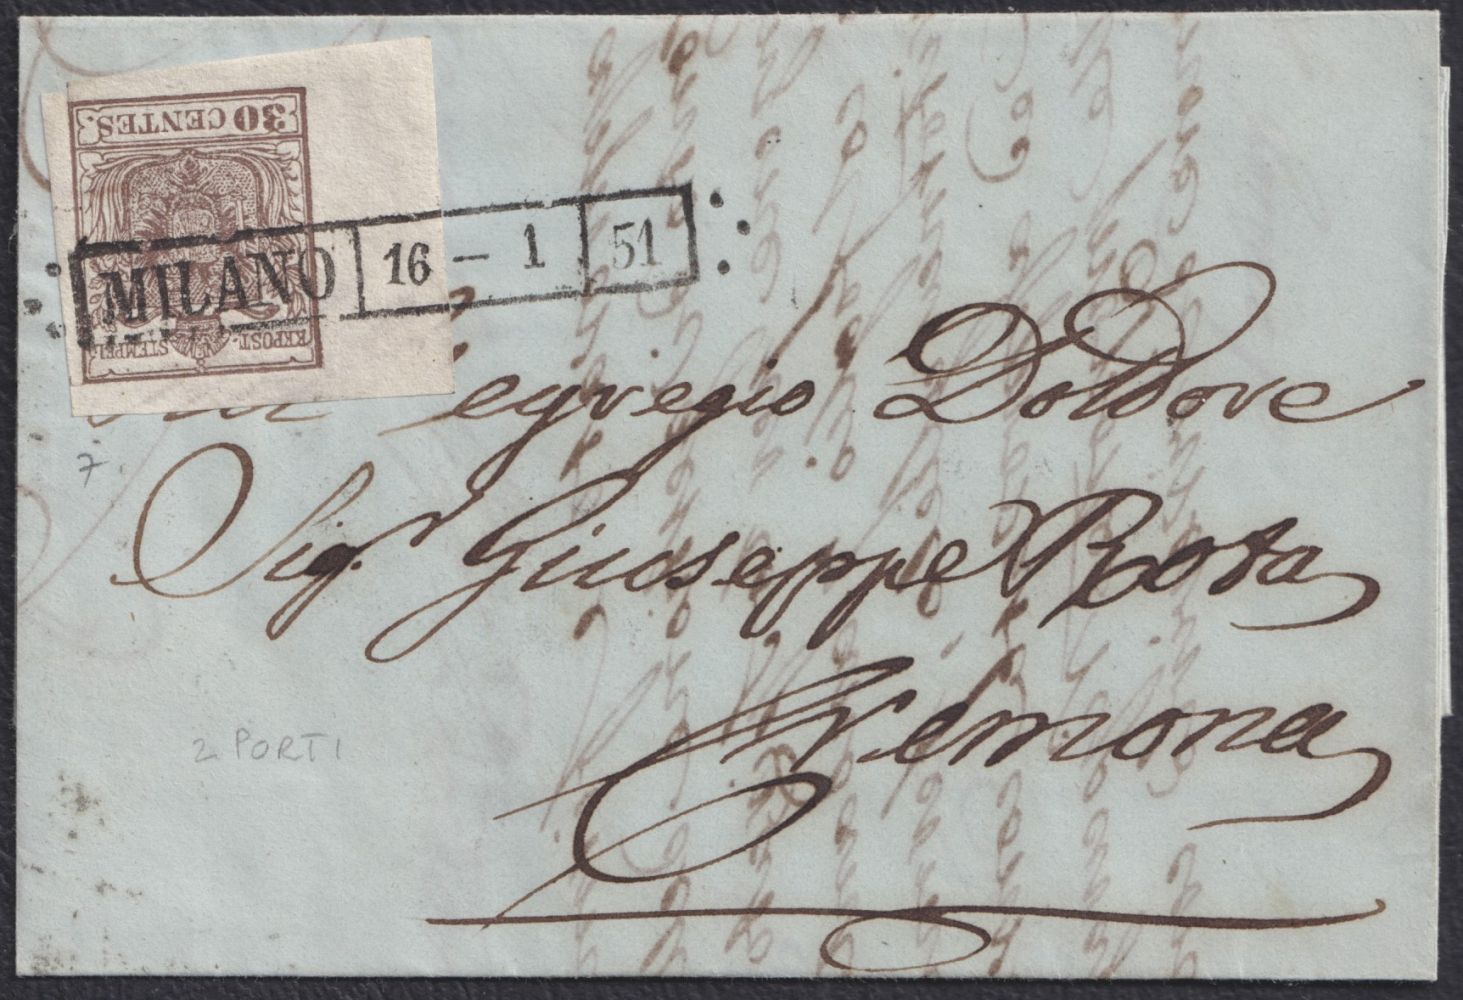 30 CENTES.
KKPOST-STEMPEL
MILANO 16 - 1 51
egregio Dottore
Sigr Giuseppe Rota
Cremona
7.
2 PORTI